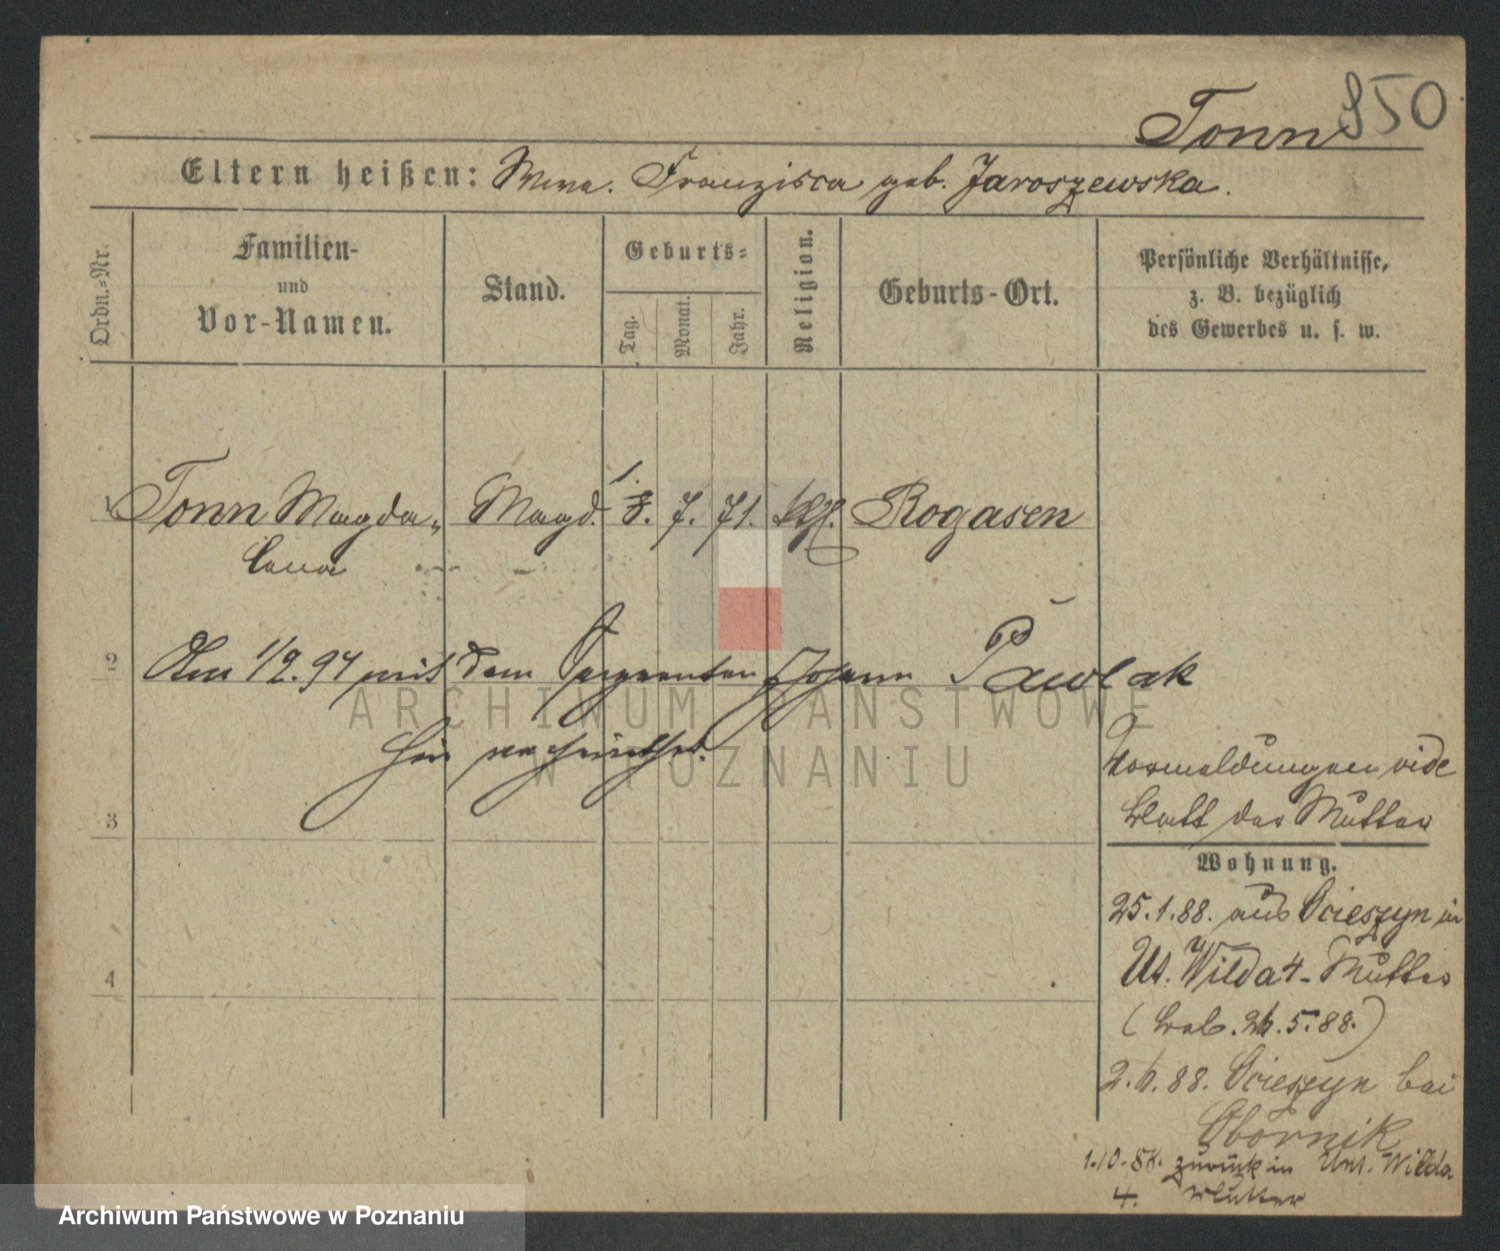 Tonn 850
Eltern heißen: Wwe. Franzisca geb. Jaroszewska.
Ordn.=Nr.
Familien-
und
Vor-Namen.
Stand.
Geburts=
Tag.
Monat.
Jahr.
Religion.
Geburts-Ort.
Persönliche Verhältnisse,
z. B. bezüglich
des Gewerbes u. s. w.
1.
1 Tonn Magda„ Magd. 8. 7. 71. kth. Rogasen
lena
2 Am 1/9. 94 mit dem Sergeanten Johann Pawlak
hier verheirathet.
Vormeldungen vide
Blatt der Mutter
3
Wohnung.
25.1.88. aus Ocieszyn in
4 Ut. Wilda 4. Mutter
26.5.88.)
2.6.88. Ocieszyn bei
Obornik
1.10.88. zurück in Unt. Wilda
4. Mutter
ARCHIWUM PAŃSTWOWE
W POZNANIU
Archiwum Państwowe w Poznaniu